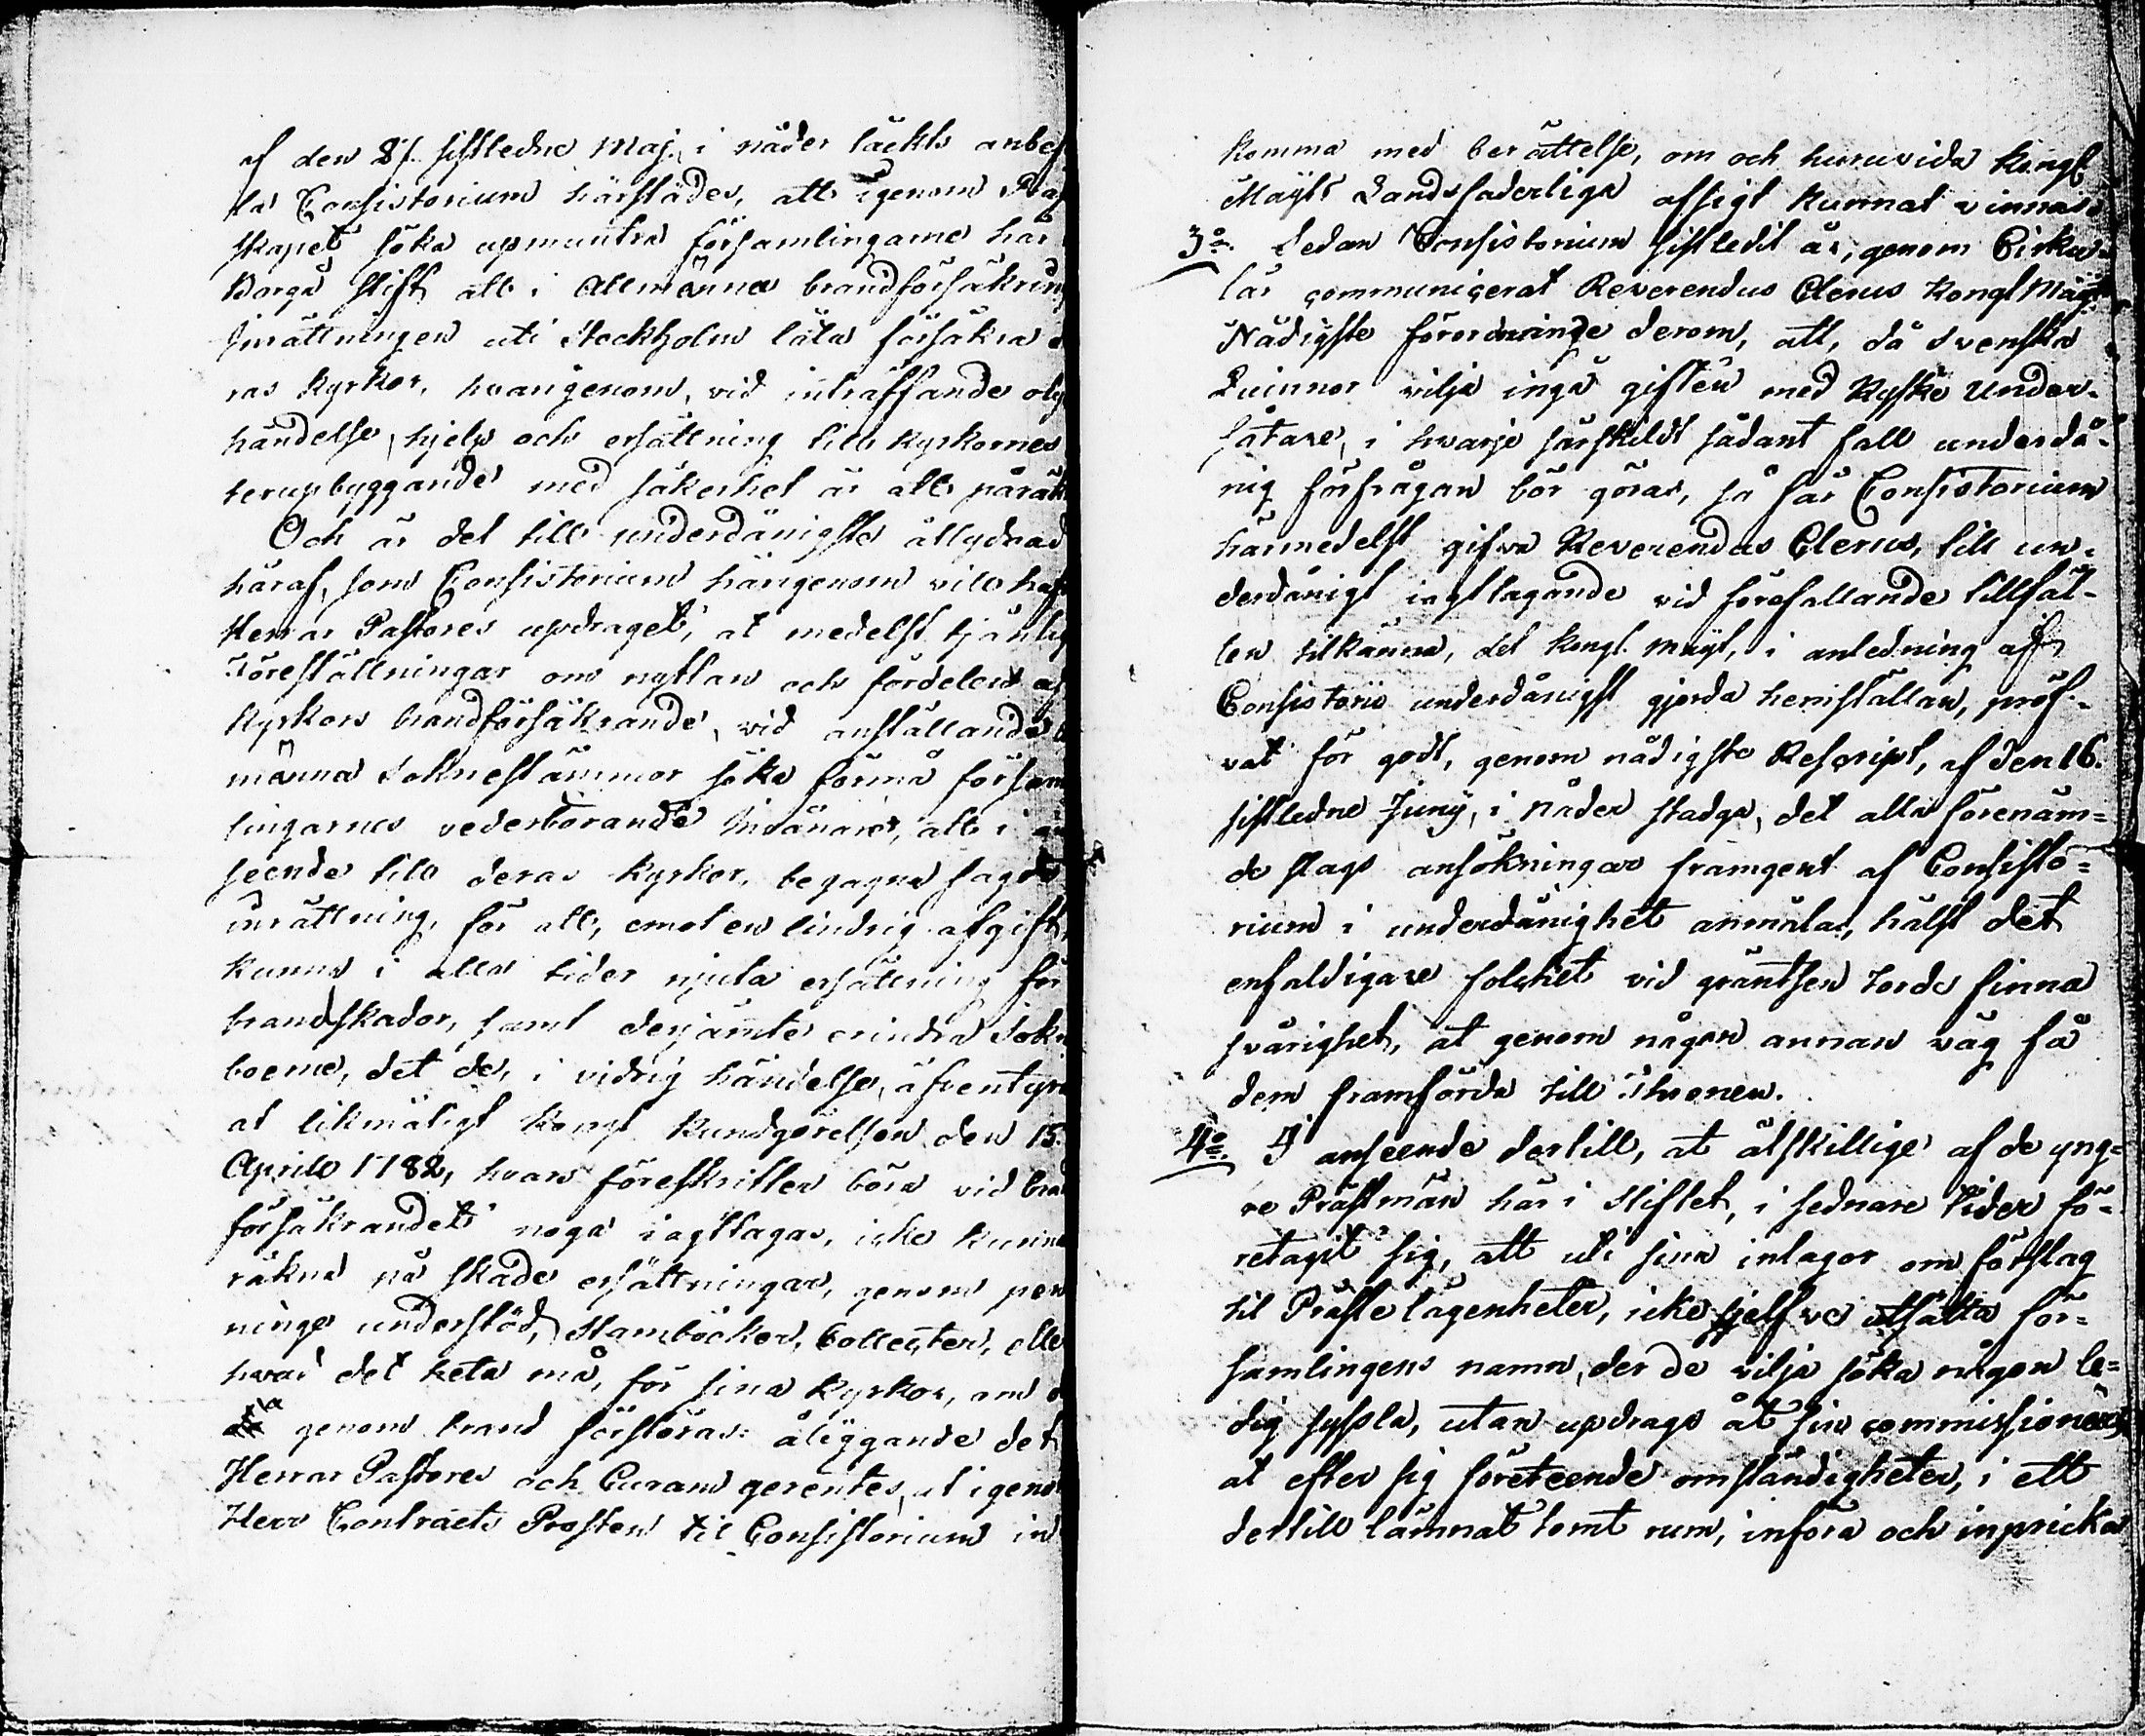 af den 27. sistledne Maj. i nåder täckts anbef
la Consistorium härstädes, att igenom Präs
skapet söka upmuntra församlingarne här
Borgå stift att i Allmänna brandförsäkring
Inrättningen uti Stockholm låta försäkra
ras kyrkor, hvarigenom, vid inträffande oly
händelse, hjelp och ersättning till kyrkornes
terupbyggande med säkerhet är att påräk
Och är det till underdånigste åtlydnad
häraf, som Consistorium härigenom vill haf
Herrar Pastores updraget, at medelst tjänlig
Föreställningar om nyttan och fördelen af
kyrkors brandförsäkrande, vid anställande
männa Soknestämmor söka förmå försam
lingarnes vederbörande Invånare, att i an
seende till deras kyrkor, begagna sagde
inrättning, för att, emot en lindrig afgift,
kunna i alla tider njuta ersättning för
brandskador, samt derjämte erindra Sokn
boerne, det de, i vidrig händelse, äfventyra
at likmätigt Kongl. Kundgörelsen den 15.
Aprill 1782, hvars föreskrifter böra vid bran
försäkrandet noga iagttagas, icke kunna
räkna på skade ersättningar, genom pen
ninge understöd, Stamböcker, Collecter, elle
hvad det heta må, för sina kyrkor, om d
genom brand förstöras: åliggande det
Herrar Pastores och Curam gerentes, at igenom
Herr Contracts Prosten til Consistorium in
komma med berättelse, om och huruvida Kongl
Maÿts Landsfaderliga afsigt kunnat vinnas.
3:o Sedan Consistorium sistledit år, genom Cirku-
lär communicerat Reverendus Clerus Kongl Maÿts
Nådigste förordnande derom, att, då Svenska
Quinnor vilja ingå giften med Ryske Under-
såtare, i hvarje särskildt sådant fall underdå-
nig förfrågan bör göras, så får Consistorium
härmedelst gifva Reverendus Clerus, till un-
derdånigt iagttagande vid förefallande tillfäl-
len tilkänna, det Kongl. Maÿt, i anledning af
Consistorii underdånigst gjorda hemställan, pröf-
vat för godt, genom nådigste Rescript, af den 16.
sistledne Junÿ, i nåder stadga, det alla förenäm-
de slags ansökningar framgent af Consisto-
rium i underdånighet anmälas, hälst det
enfaldigare folcket vid gräntsen torde finna
svårighet, at genom någon annan väg få
dem framförda till Thronen.
4:o I anseende dertill, at åtskillige af de yng-
re Prästmän här i Stiftet, i sednare tider fö-
retagit sig, att uti sina inlagor om förslag
til Präste lägenheter, icke sjelfve utsätta för-
samlingens namn, der de vilja söka någon le-
dig syssla, utan updraga åt sin commissionär,
at efter sig företeende omständigheter, i ett
dertill lämnat tomt rum, införa och inpricka